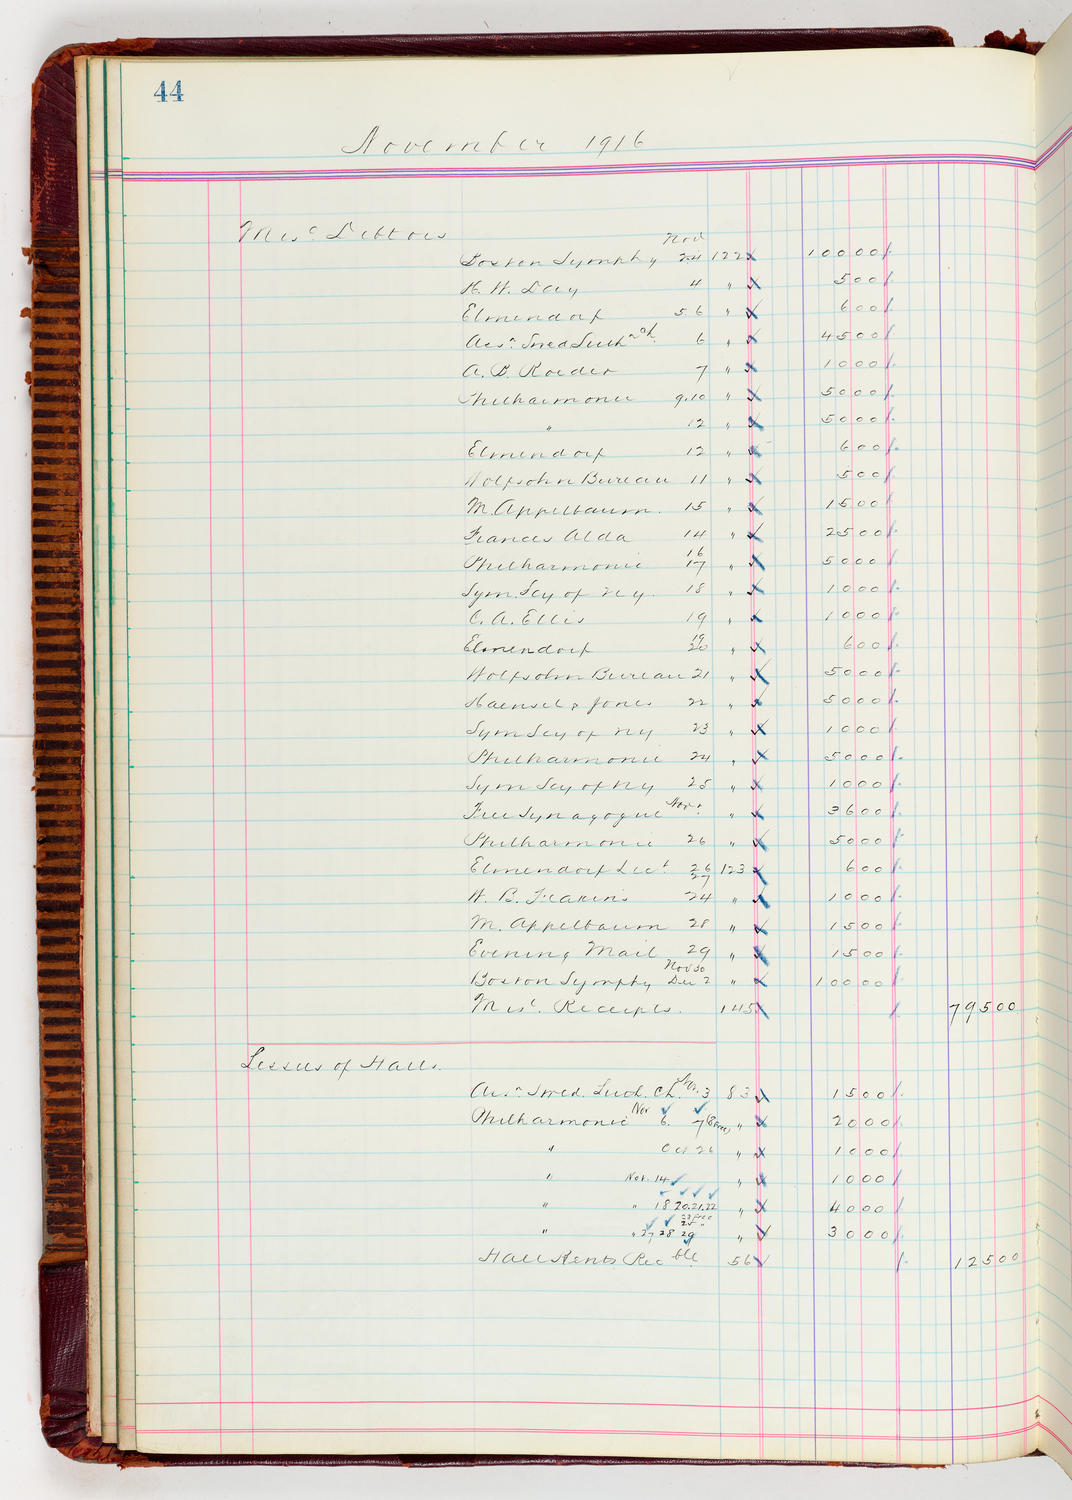 44
November 1916
Misc. Debtors
Nov
Boston Symphy 24 122 100 00
H. W. Day 4 " 5 00
Elmendorf 5 6 " 6 00
Aesn Swed Luthn Ch. 6 " 45 00
A. B. Roeder 7 " 10 00
Philharmonic 9.10 " 50 00
" 12 " 50 00
Elmendorf 12 " 6 00
Wolfsohn Bureau 11 " 5 00
M. Appelbaum. 15 " 15 00
Frances Alda 14 " 25 00
Philharmonic 16 17 " 50 00
Sym. Scy of N Y. 18 " 10 00
C. A. Ellis 19 " 10 00
Elmendorf 19 20 " 6 00
Wolfsohn Bureau 21 " 50 00
Haensel & Jones 22 " 50 00
Sym Scy of N Y 23 " 10 00
Philharmonic 24 " 50 00
Sym Scy of N Y 25 " 10 00
Free Synagogue Nov. " 36 00
Philharmonic 26 " 50 00
Elmendorf Lect 26 27 123 6 00
W. B. 24 " 10 00
M. Appelbaum 28 " 15 00
Evening Mail 29 " 15 00
Boston Symphy Nov 30 Dec 2 " 100 00
Misc. Receipts. 145 795 00
Lessees of Hall.
Aesn Swed. Luth. Ch. Nov. 3 83 15 00
Philharmonic Nov 6. 7 " 20 00
" Oct 26 " 10 00
" Nov. 14 " 10 00
" " 18 20.21.22 " 40 00
" " 27 28 29 " 30 00
Hall Rents Recble 56 125 00